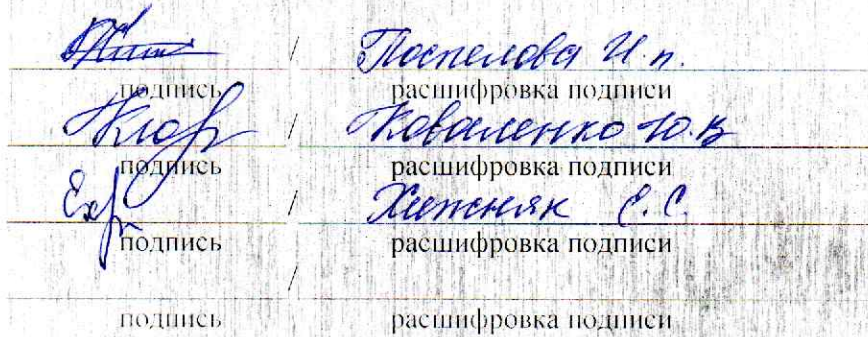 / Поспелова И.п.
подпись расшифровка подписи
/ Коваленко Ю.В
подпись расшифровка подписи
/ Хижняк Е.С.
подпись расшифровка подписи
/
подпись расшифровка подписи